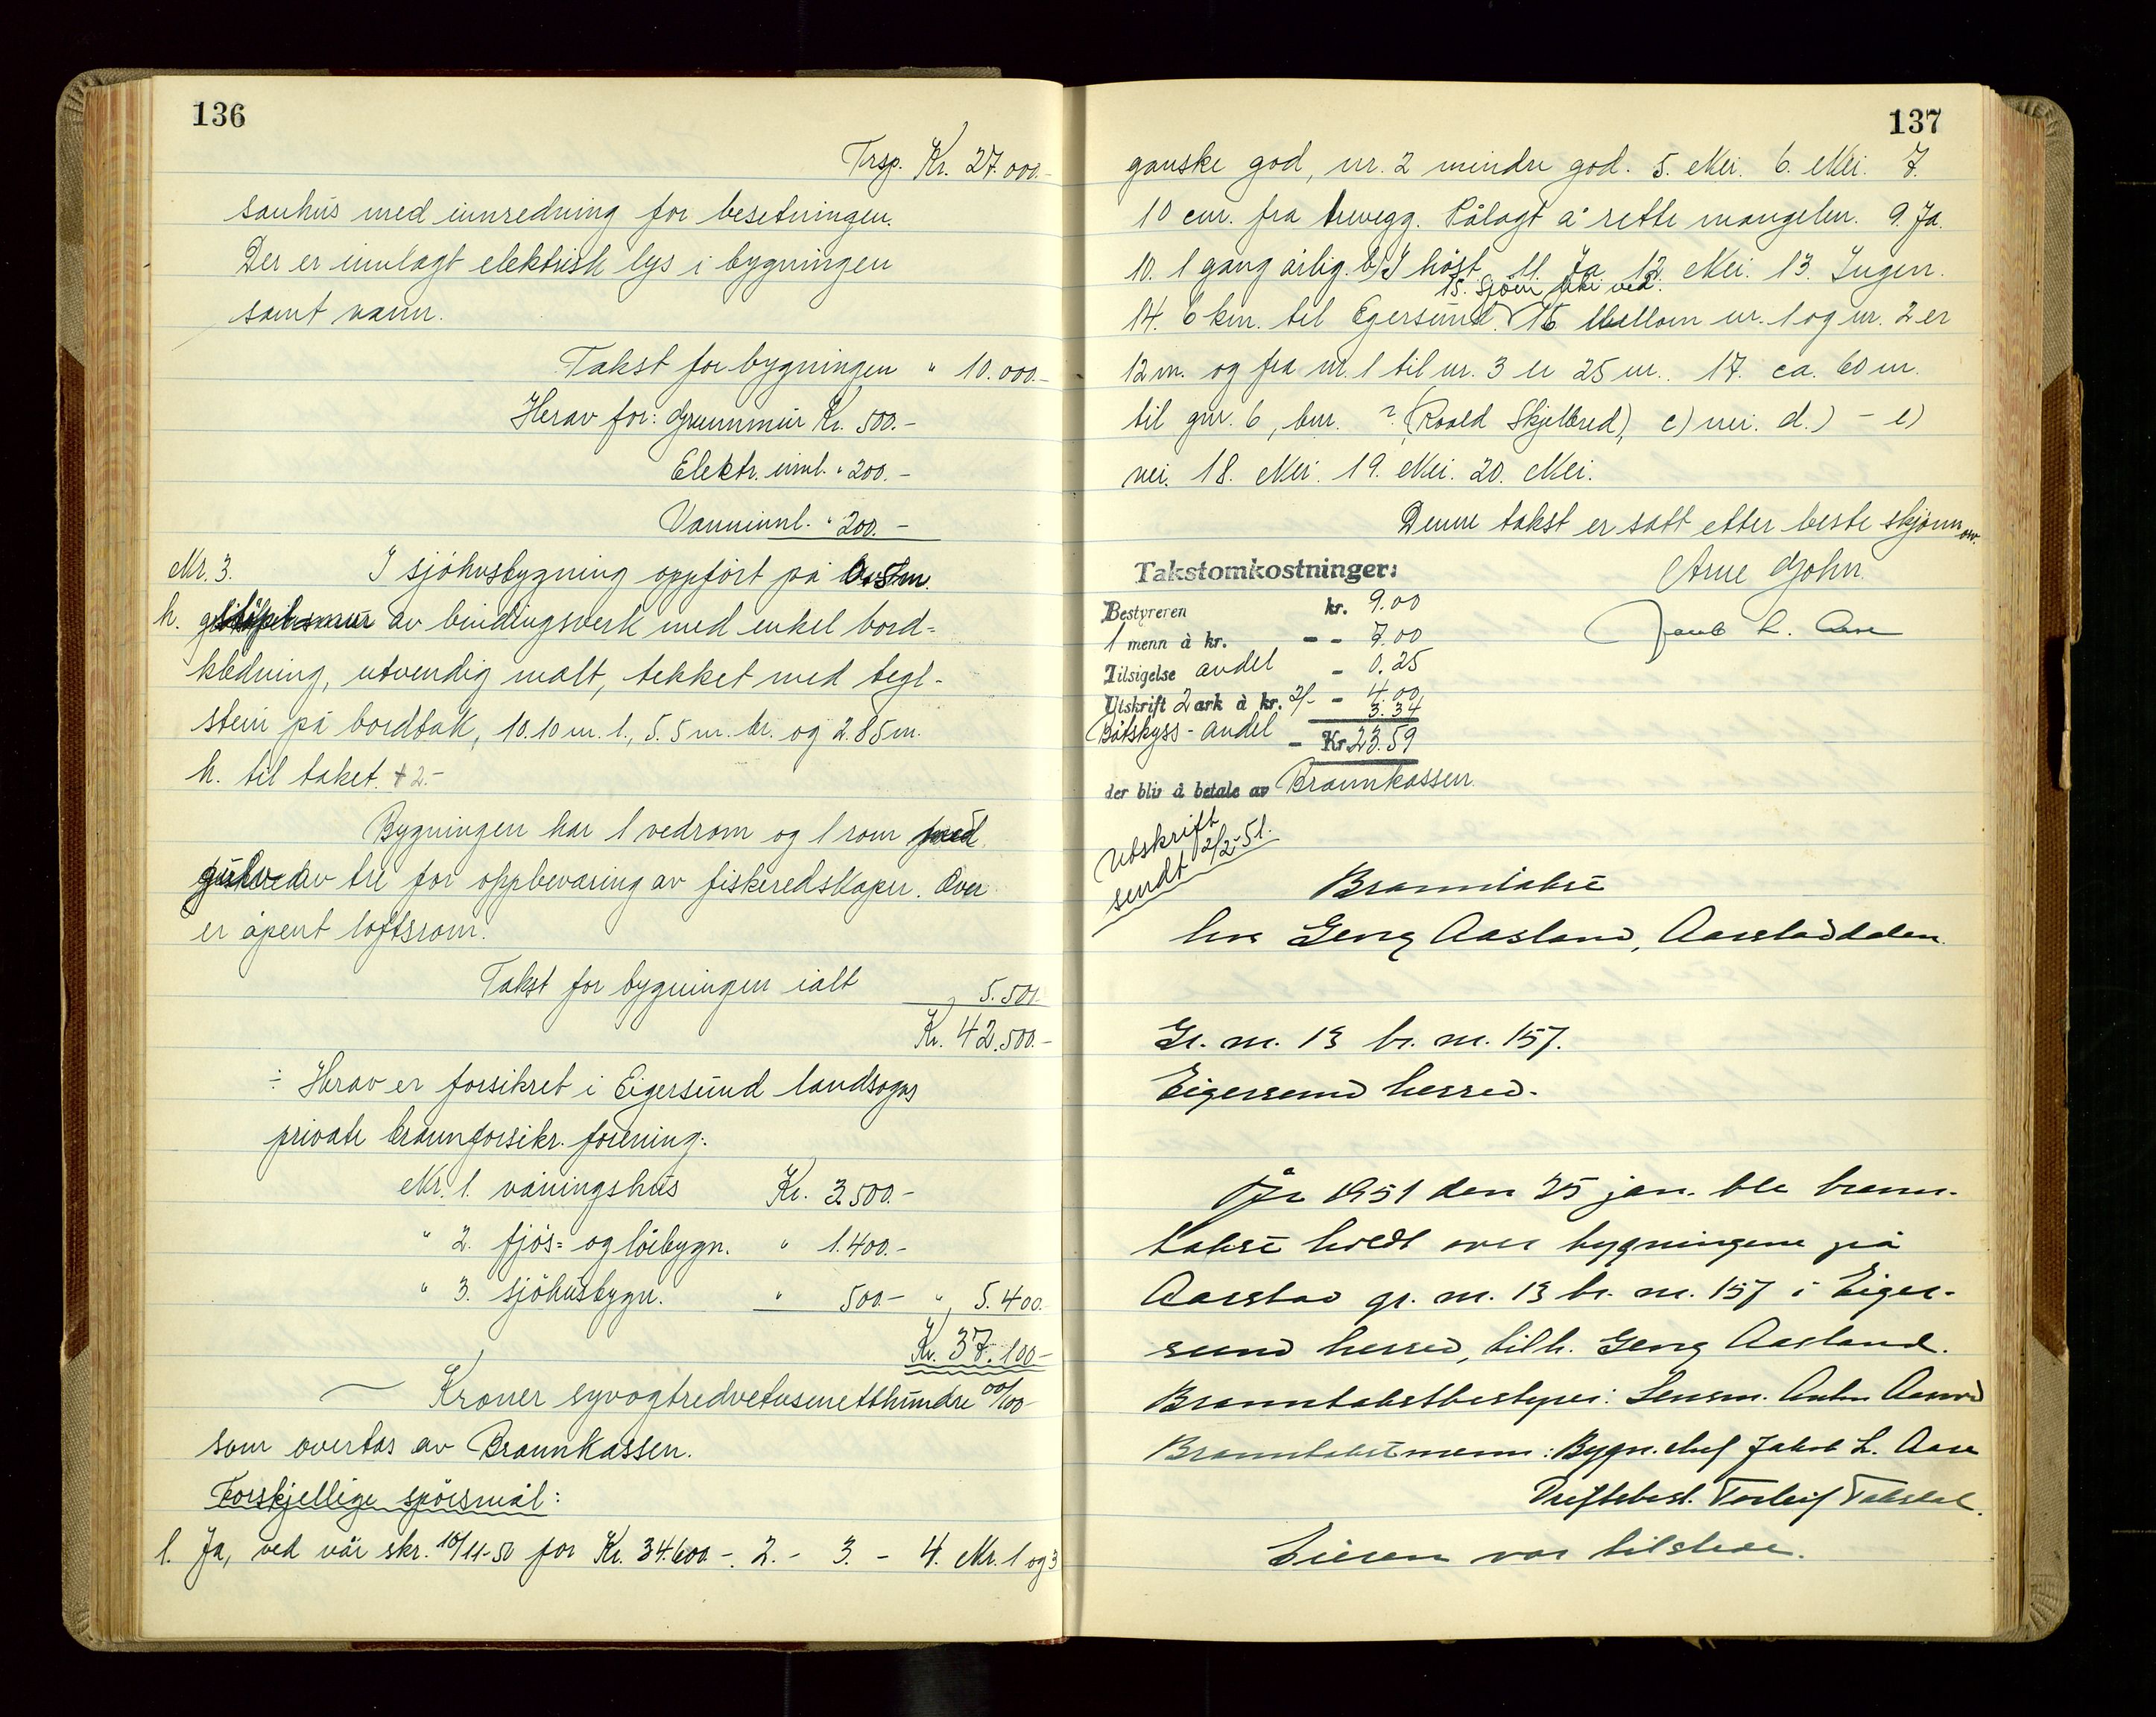 136
Trsp. Kr. 27.000.-
sauhus med innredning for besetningen.
Der er innlagt elektrisk lys i bygningen
samt vann.
Takst for bygningen " 10.000.-
Herav for: Grunnmur Kr. 500.-
Elektr. innl. " 200.-
Vanninnl. " 200.-
Nr. 3. I sjøhusbygning oppført på
h. av bindingsverk med enkel bord-
kledning, utvendig malt, tekket med tegl-
stein på bordtak, 10.10 m. l., 5.5 m. br. og 2.85 m.
h. til taket. + 2.-
Bygningen har 1 vedrom og 1 rom
av tre for oppbevaring av fiskeredskaper. Over
er åpent loftsrom.
Takst for bygningen ialt " 5.500.-
Kr. 42.500.-
÷ Herav er forsikret i Eigersund landsogns
private brannforsikr. forening:
Nr. 1. våningshus Kr. 3.500.-
" 2. fjøs- og løebygn. " 1.400.-
" 3. sjøhusbygn. " 500.- " 5.400.-
Kr. 37.100.-
Kroner syvogtredvetusenetthundre 00/100
som overtas av Brannkassen.
Forskjellige spørsmål:
1. Ja, ved vår skr. 10/11-50 for Kr. 34.600.-. 2. - 3. - 4. Nr. 1 og 3
137
ganske god, nr. 2 mindre god. 5. Nei. 6. Nei. 7.
10 cm. fra trevegg. Pålagt å rette mangelen. 9. Ja.
10. 1 gang årlig. b) I høst. 11. Ja. 12. Nei. 13. Ingen.
15. Sjøen like ved.
14. 6 km. til Egersund. 16 Mellom nr. 1 og nr. 2 er
12 m. og fra nr. 1 til nr. 3 er 25 m. 17. ca. 60 m.
til gnr. 6, bnr. ? (Roald Skjelbred), c) nei. d.) - e)
nei. 18. Nei. 19. Nei. 20. Nei.
Denne takst er satt etter beste skjønn
Takstomkostninger:
Arne Gjohn
Bestyreren kr. 9.00
1 menn à kr. - - 7.00
Jacob L. Aase
Tilsigelse andel - 0.25
Utskrift 2 ark à kr. 2/- - 4.00
Båtskyss - andel 3.34
- Kr 23.59
der bliv å betale av Brannkassen.
Utskrift
sendt 12/2-51.
Branntakst
hos Georg Aasland, Aarstaddalen.
Gr. nr. 13 br. nr. 157.
Eigersund herred.
År 1951 den 25 jan. ble brann-
takst holdt over bygningene på
Aarstad gr. nr. 13 br. nr. 157 i Eiger-
sund herred, tilh. Georg Aasland.
Branntakstbestyrer: Lensm.
Branntakstmenn: Bygn.chef Jakob L. Aase
Driftsbest. Torleif
Eieren var tilstede.